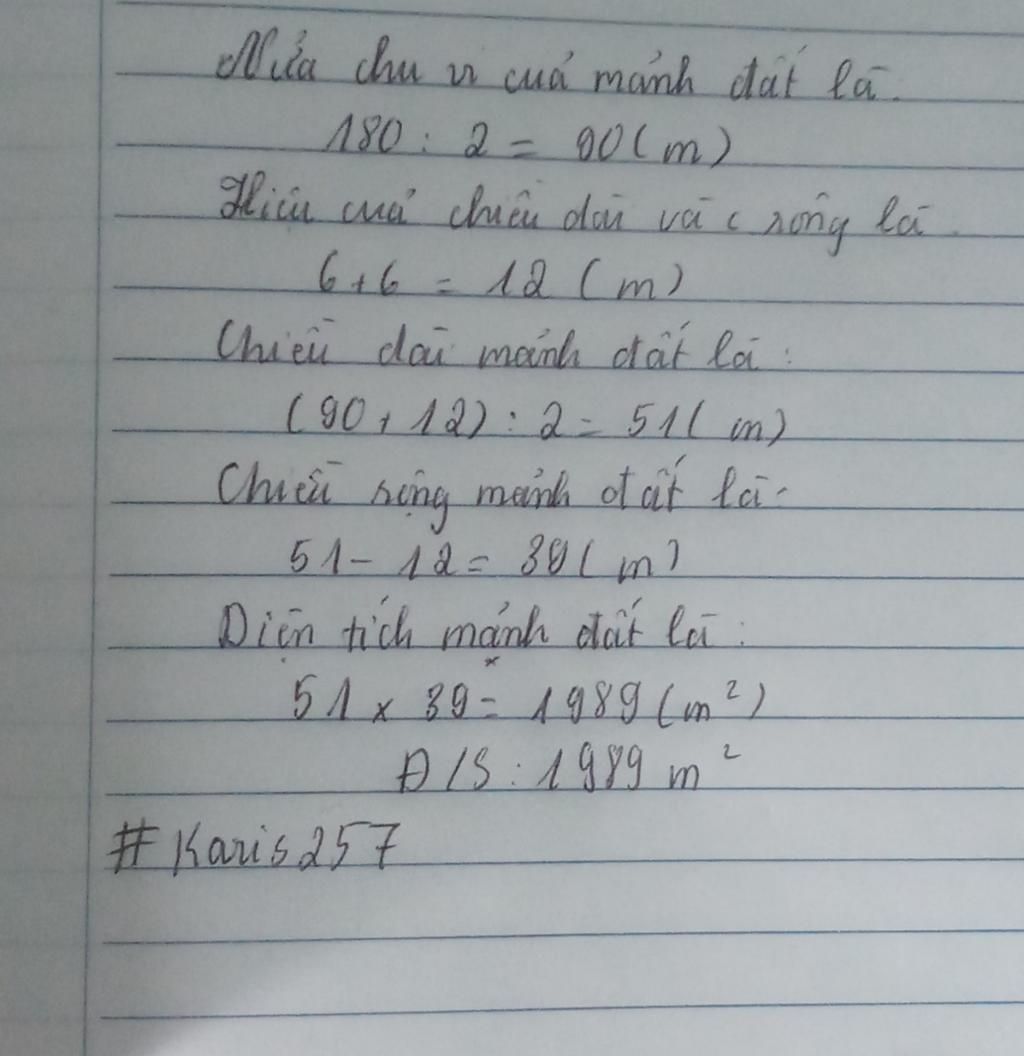 Nửa chu vi của mảnh đất là.
180 : 2 = 90 (m)
Hiệu của chiều dài và c rộng là.
6 + 6 = 12 (m)
Chiều dài mảnh đất là :
(90 + 12) : 2 = 51 (m)
Chiều rộng mảnh đất là :
51 - 12 = 39 (m)
Diện tích mảnh đất là :
51 x 39 = 1989 (m²)
Đ/S : 1989 m²
#Karis257